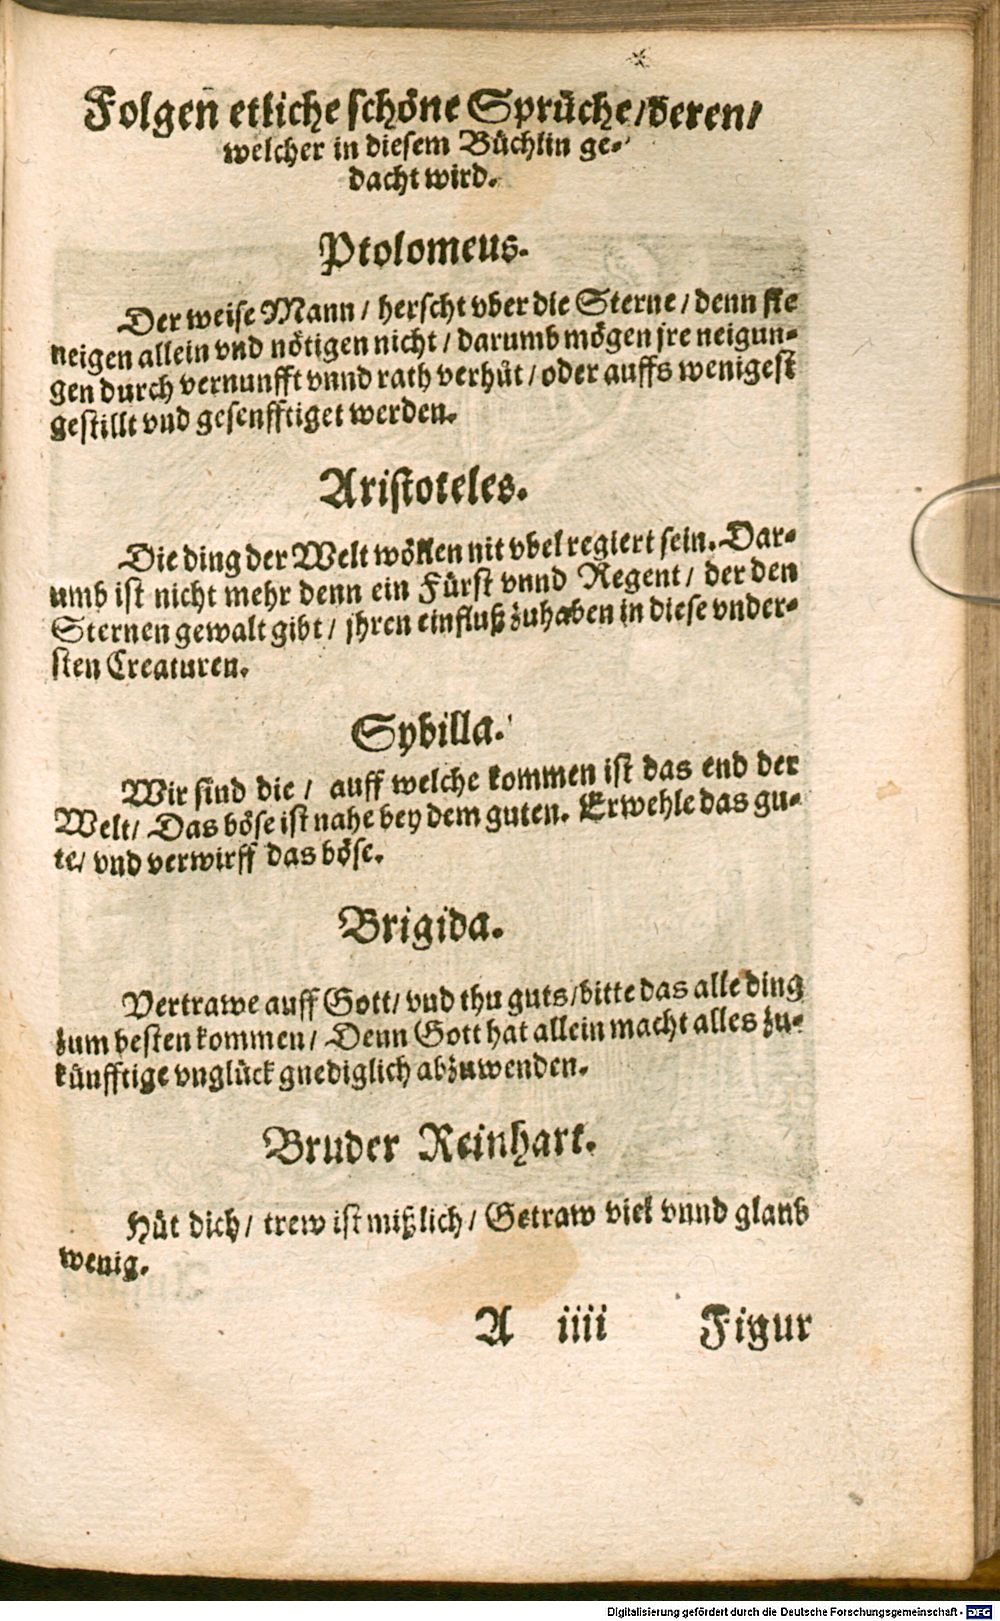 Folgen etliche schöne Sprüche/deren/
welcher in diesem Büchlin ge-
dacht wird.
Ptolomeus.
Der weise Mann / herscht vber die Sterne / denn sie
neigen allein vnd nötigen nicht / darumb mögen jre neigun-
gen durch vernunfft vnnd rath verhüt / oder auffs wenigest
gestillt vnd gesenfftiget werden.
Aristoteles.
Die ding der Welt wöllen nit vbel regiert sein. Dar-
umb ist nicht mehr denn ein Fürst vnnd Regent / der den
Sternen gewalt gibt / jhren einfluß zuhaben in diese vnder-
sten Creaturen.
Sybilla.
Wir sind die / auff welche kommen ist das end der
Welt/ Das böse ist nahe bey dem guten. Erwehle das gu-
te/ vnd verwirff das böse.
Brigida.
Vertrawe auff Gott/ vnd thu guts/bitte das alle ding
zum besten kommen/ Denn Gott hat allein macht alles zu-
künfftige vnglück gnediglich abzuwenden.
Bruder Reinhart.
Hüt dich/ trew ist mißlich/ Getraw viel vnnd glaub
wenig.
A iiii Figur
Digitalisierung gefördert durch die Deutsche Forschungsgemeinschaft - DFG